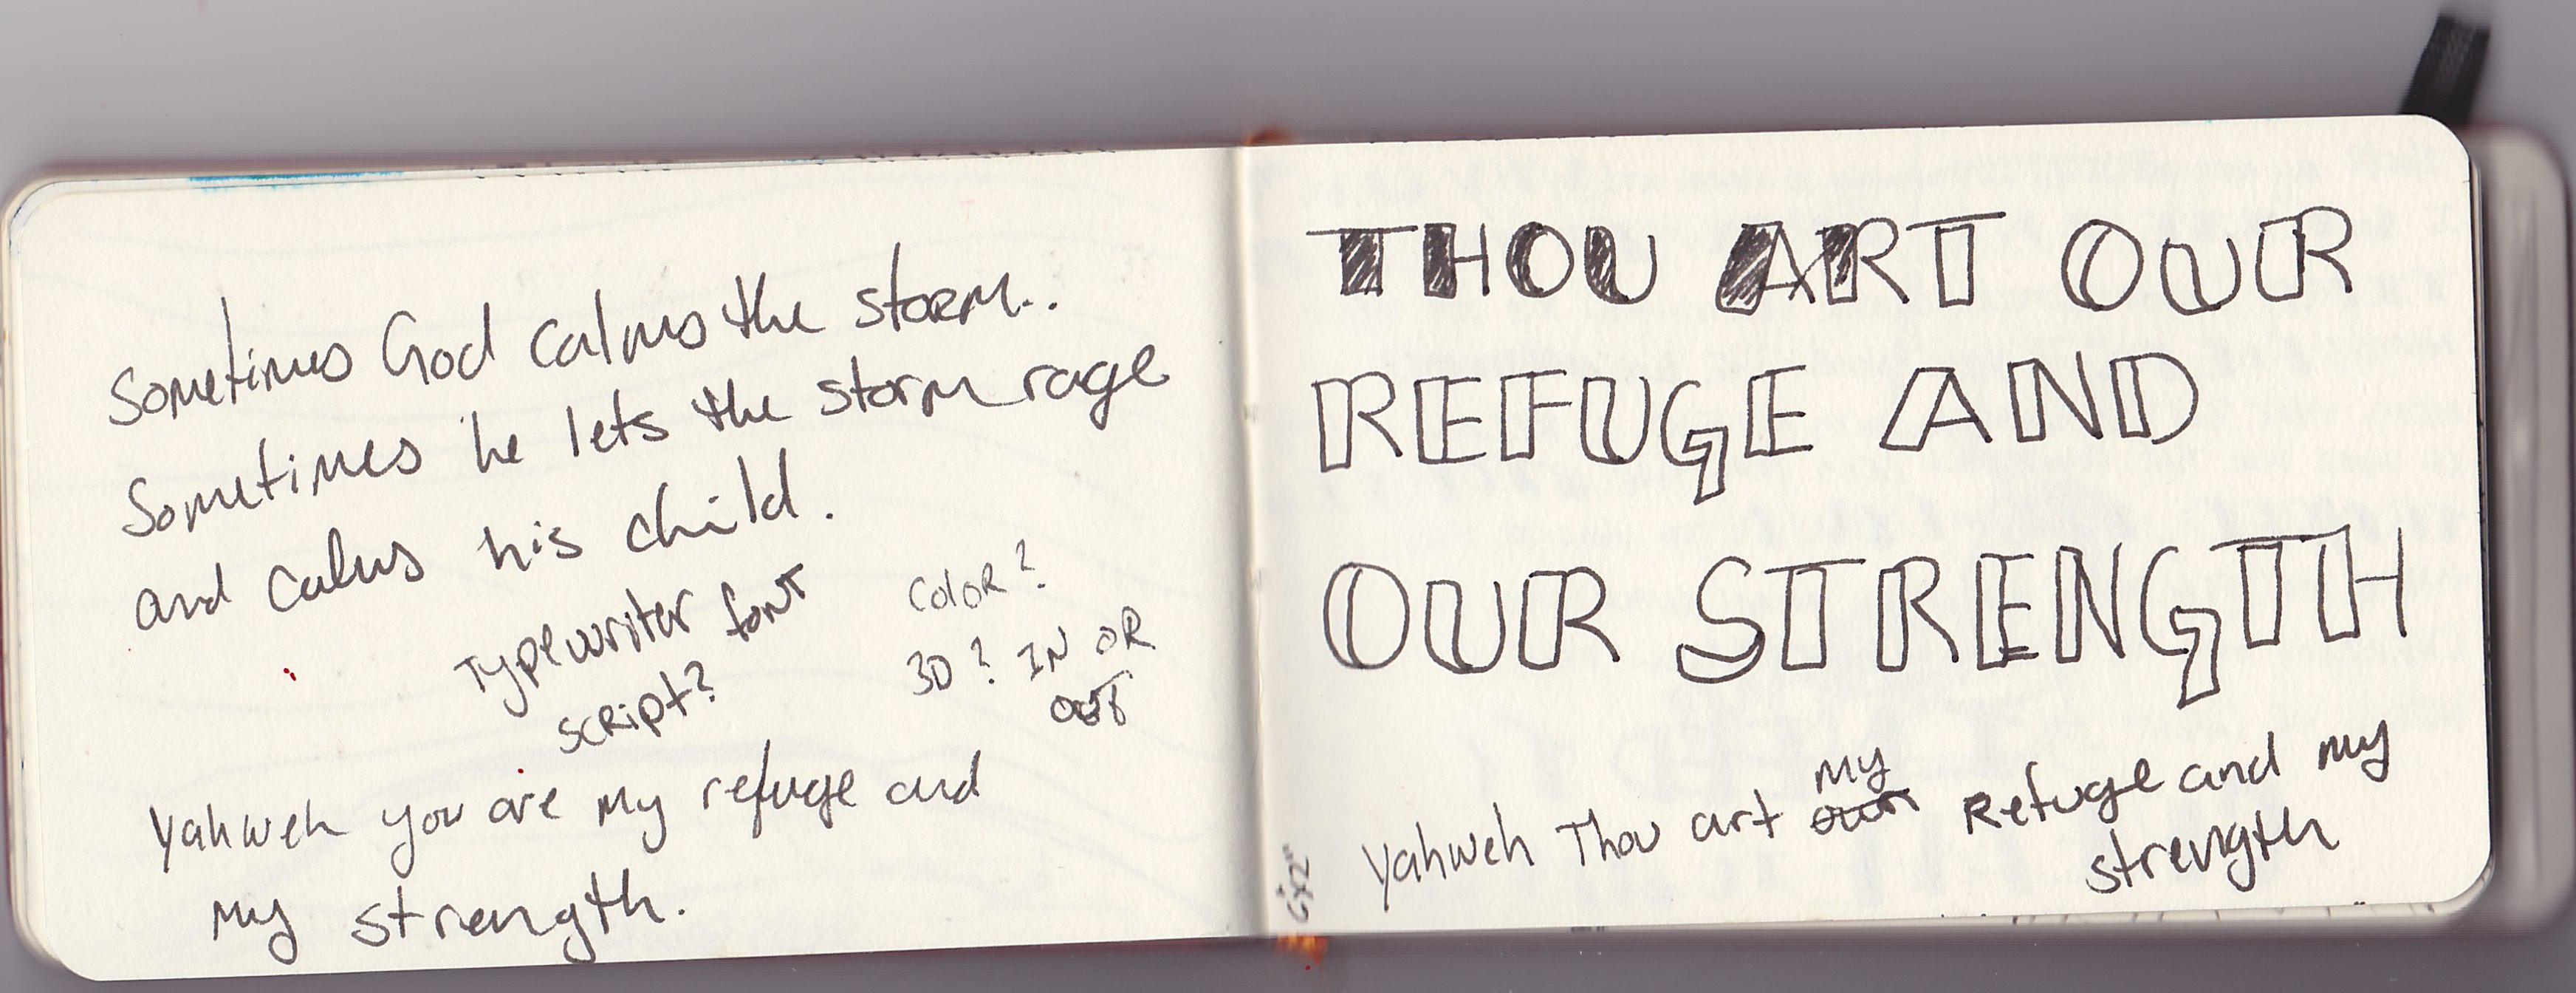 Sometimes God calms the storm..
Sometimes he lets the storm rage
and calms his child.
Typewriter font
script?
Color?
3D? IN OR
OUT
Yahweh you are my refuge and
my strength.
THOU ART OUR
REFUGE AND
OUR STRENGTH
my
Yahweh Thou art our Refuge and my
strength